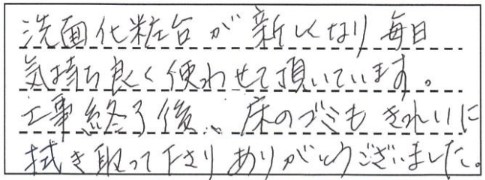 洗面化粧台が新しくなり毎日
気持ち良く使わせて頂いています。
工事終了後、床のゴミもきれいに
拭き取って下さりありがとうございました。